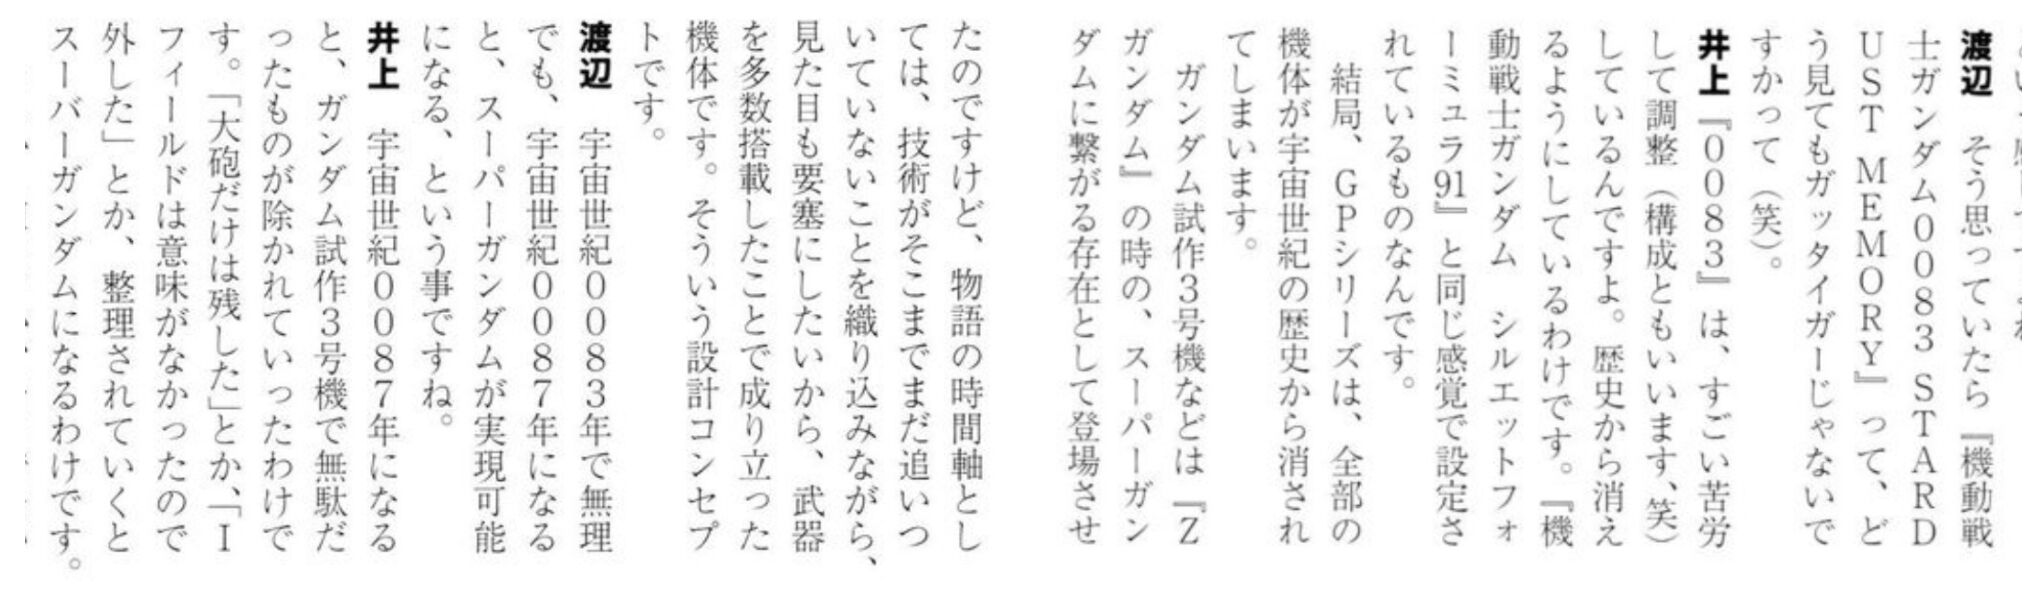 渡辺　そう思っていたら『機動戦
士ガンダム0083 STARD
UST MEMORY』って、ど
う見てもガッタイガーじゃないで
すかって（笑）。
井上　『0083』は、すごい苦労
して調整（構成ともいいます、笑）
しているんですよ。歴史から消え
るようにしているわけです。『機
動戦士ガンダム　シルエットフォ
ーミュラ91』と同じ感覚で設定さ
れているものなんです。
　結局、GPシリーズは、全部の
機体が宇宙世紀の歴史から消され
てしまいます。
　ガンダム試作3号機などは『Z
ガンダム』の時の、スーパーガン
ダムに繋がる存在として登場させ
たのですけど、物語の時間軸とし
ては、技術がそこまでまだ追いつ
いていないことを織り込みながら、
見た目も要塞にしたいから、武器
を多数搭載したことで成り立った
機体です。そういう設計コンセプ
トです。
渡辺　宇宙世紀0083年で無理
でも、宇宙世紀0087年になる
と、スーパーガンダムが実現可能
になる、という事ですね。
井上　宇宙世紀0087年になる
と、ガンダム試作3号機で無駄だ
ったものが除かれていったわけで
す。「大砲だけは残した」とか、「I
フィールドは意味がなかったので
外した」とか、整理されていくと
スーパーガンダムになるわけです。